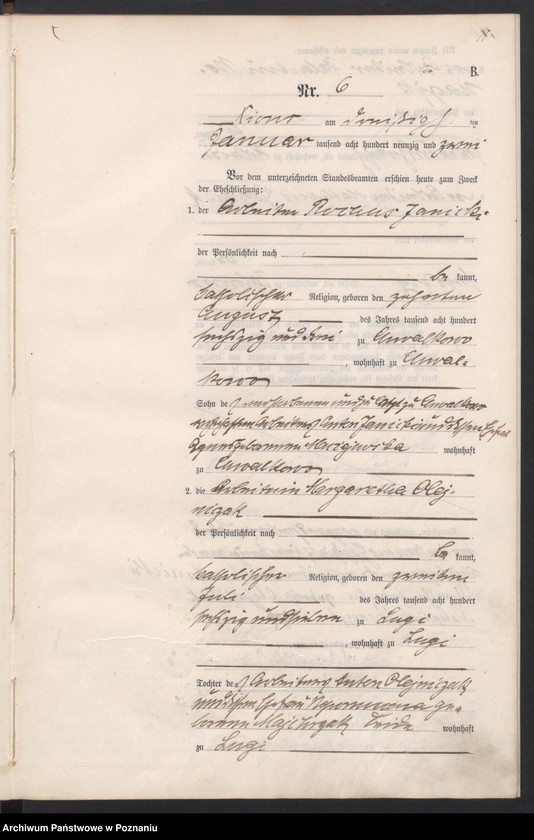 B.
Nr. 6
Xions am dreißigsten
Januar tausend acht hundert neunzig und zwei
Vor dem unterzeichneten Standesbeamten erschien heute zum Zweck
der Eheschließung:
1. der Arbeiter Rochus Janicki
der Persönlichkeit nach
be kannt,
katholischer Religion, geboren den zehnten
August des Jahres tausend acht hundert
sechszig und drei zu Chwalkowo
, wohnhaft zu Chwal-
kowo
Sohn des verstorbenen und zu Chwalkowo
Arbeiters Anton Janicki und dessen Ehefrau
Agnes geborenen wohnhaft
zu Chwalkowo
2. die Arbeiterin Margaretha Olej-
niczak
der Persönlichkeit nach
be kannt,
katholischer Religion, geboren den zweiten
Juli des Jahres tausend acht hundert
sechszig und sieben zu Lugi
, wohnhaft zu Lugi
Tochter des Arbeiters Anton Olejniczak
und dessen Ehefrau ge-
borene beide wohnhaft
zu Lugi
Archiwum Państwowe w Poznaniu